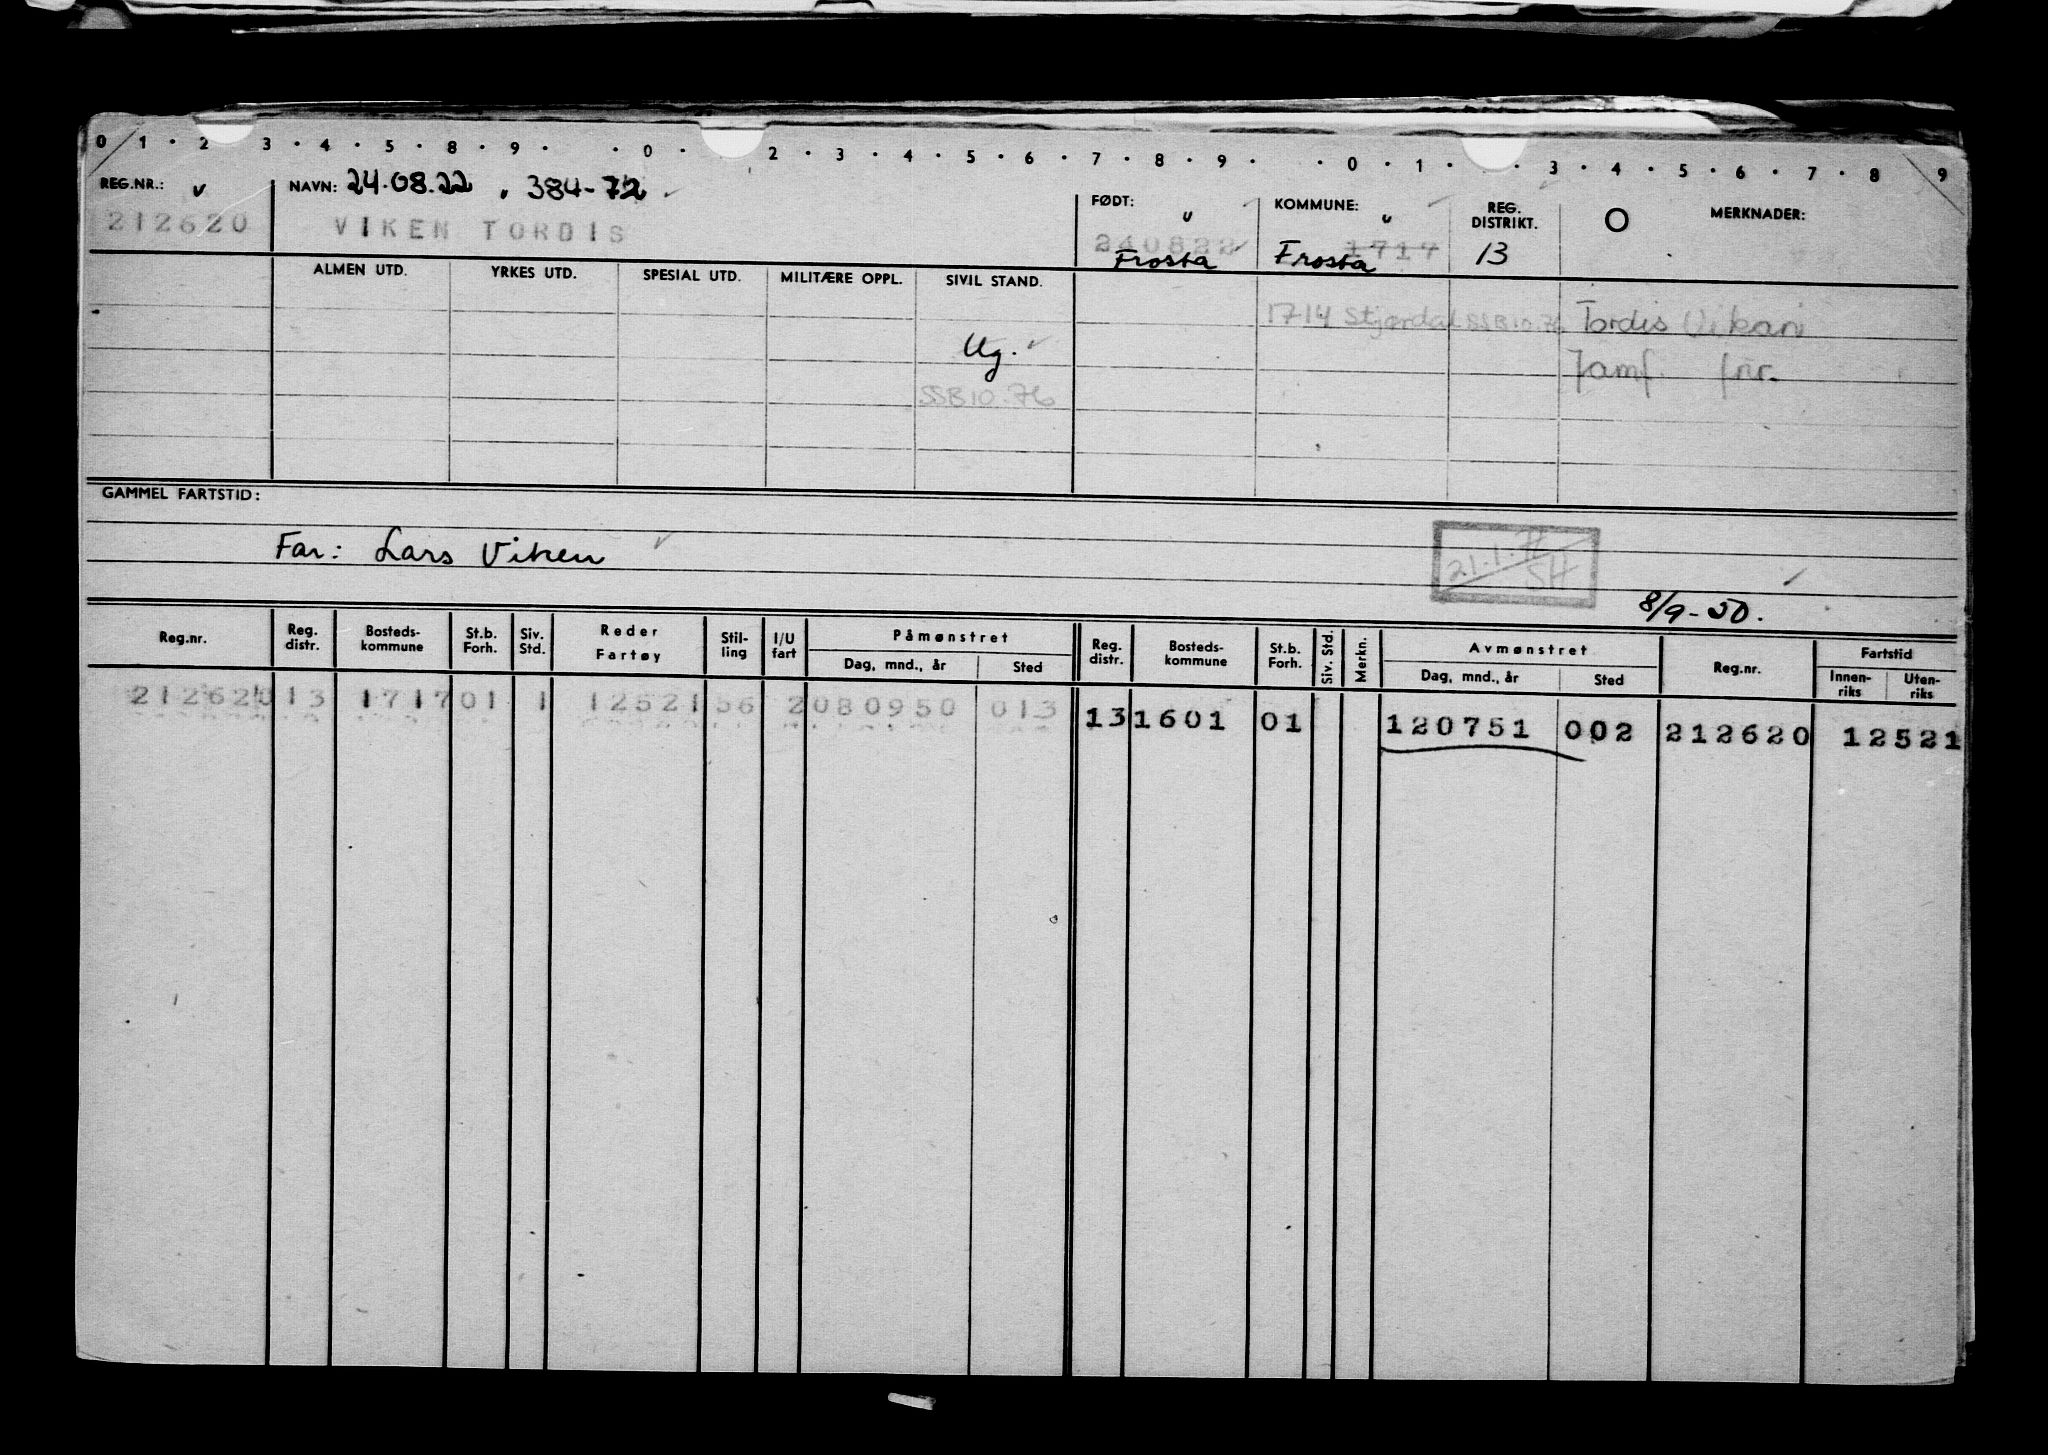 0 1 · 2 3 · 4 · 5 · 8 · 9 · · 0 · 2 · 3 · 4 · 5 · 6 · 7 · 8 · 9 · · 0 · 1 · · 3 · 4 · 5 · 6 · 7 · 8 9
REG.NR.: NAVN: 24.08.22 384-72 FØDT: KOMMUNE: REG. DISTRIKT. O MERKNADER:
212620 VIKEN TORDIS 240822 Frosta 1717 Frosta 13
ALMEN UTD. YRKES UTD. SPESIAL UTD. MILITÆRE OPPL. SIVIL STAND.
1714 Stjørdal SSB 10.76 Tordis Vikan
Ug. Jamf. fnr.
SSB 10.76
GAMMEL FARTSTID:
Far: Lars Viken
21.1.77 SH
8/9-50.
Reg.nr. Reg. distr. Bosteds- kommune St.b. Forh. Siv. Std. Reder Fartøy Stil- ling I/U fart Påmønstret Dag, mnd., år Sted Reg. distr. Bosteds- kommune St.b. Forh. Siv. Std. Merkn. Avmønstret Dag, mnd., år Sted Reg.nr. Fartstid Innen- riks Uten- riks
212620 13 1717 01 1 12521 56 2 080950 013 13 1601 01 120751 002 212620 12521